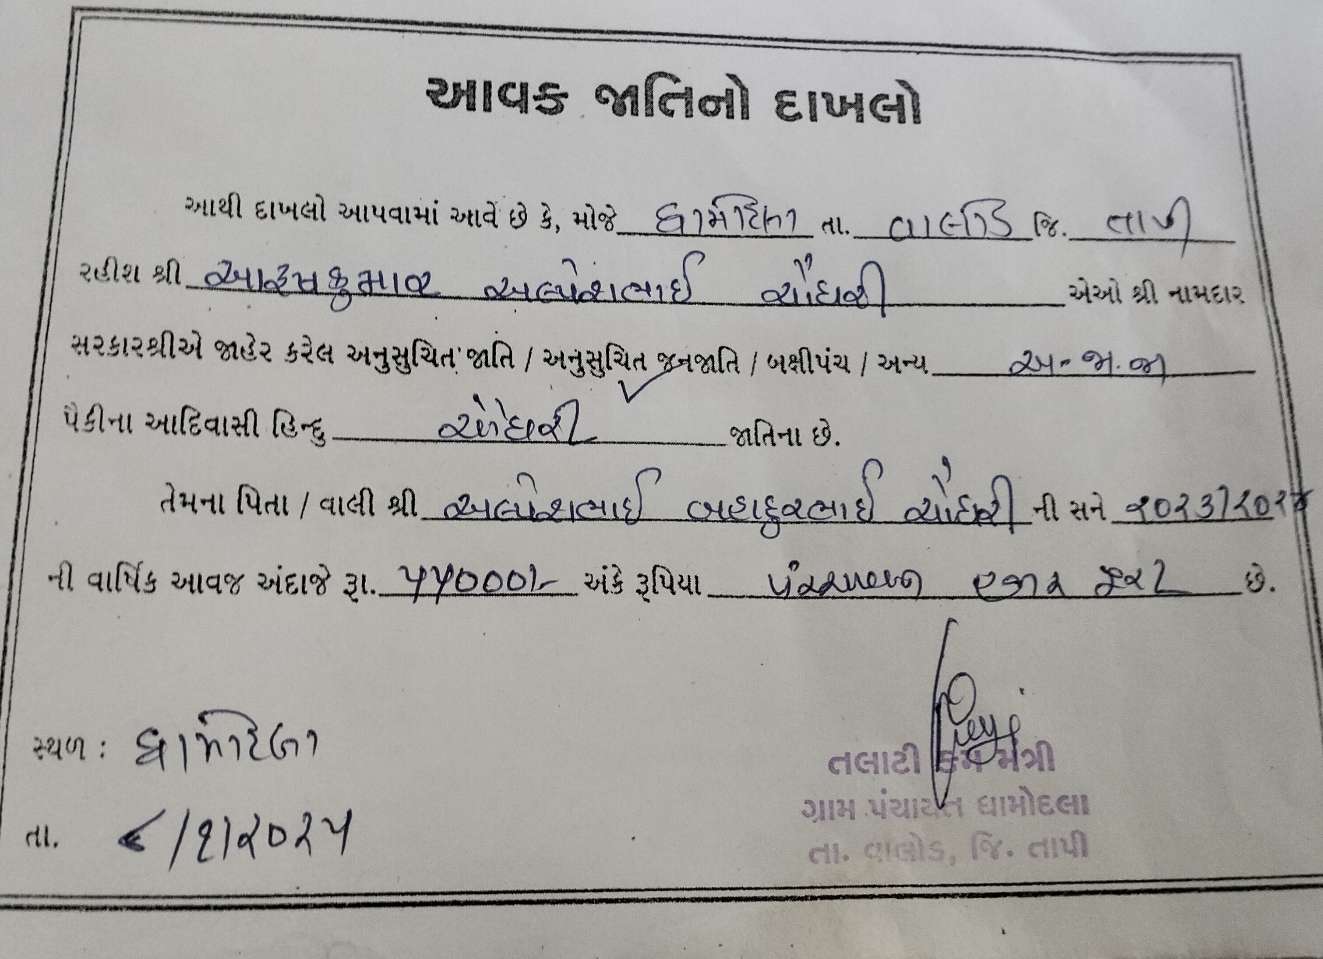 આવક જાતિનો દાખલો
આથી દાખલો આપવામાં આવે છે કે, મોજે ધામોદલા તા. વાલોડ જિ. તાપી
રહીશ શ્રી અલ્પેશભાઈ ચૌધરી એઓ શ્રી નામદાર
સરકારશ્રીએ જાહેર કરેલ અનુસુચિત જાતિ / અનુસુચિત જનજાતિ / બક્ષીપંચ / અન્ય અ.જ.જા
પૈકીના આદિવાસી હિન્દુ ચૌધરી જાતિના છે.
તેમના પિતા / વાલી શ્રી અલ્પેશભાઈ બહાદુરભાઈ ચૌધરી ની સને ૨૦૨૩/૨૦૨૪
ની વાર્ષિક આવજ અંદાજે રૂા. ૫૫૦૦૦/- અંકે રૂપિયા પંચાવન હજાર પુરા છે.
સ્થળ : ધામોદલા
તા. ૮/૧/૨૦૨૫
તલાટી કમ મંત્રી
ગ્રામ પંચાયત ધામોદલા
તા. વાલોડ, જિ. તાપી